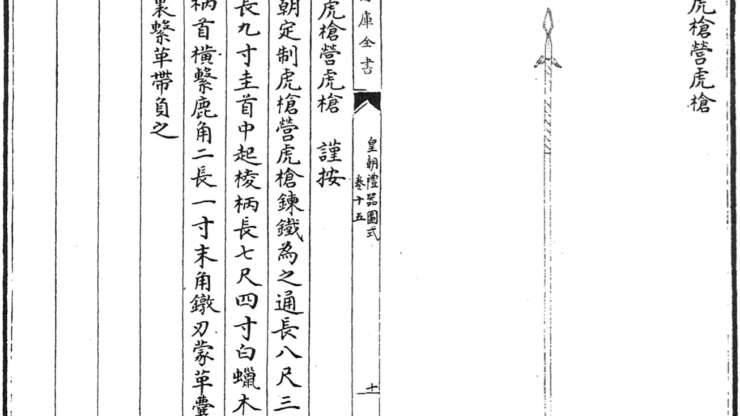 虎槍營虎槍
庫全書
皇朝禮器圖式
卷十五
十一
虎槍營虎槍　謹按
朝定制虎槍營虎槍鍊鐵為之通長八尺三
長九寸圭首中起棱柄長七尺四寸白蠟木
柄首橫繫鹿角二長一寸末角鐓刃蒙革囊
裏繫革帶負之